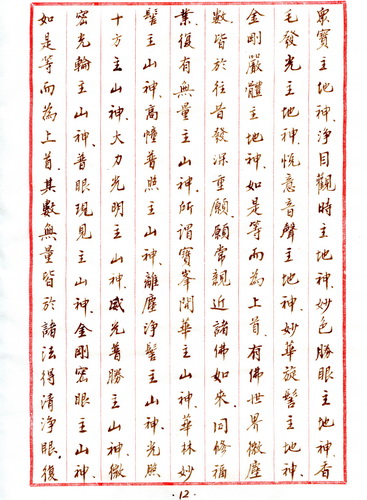 眾寶主地神淨目觀時主地神妙色勝眼主地神香
毛發光主地神悅意音聲主地神妙華旋髻主地神
金剛嚴體主地神如是等而為上首有佛世界微塵
數皆於往昔發深重願願常親近諸佛如來同修福
業復有無量主山神所謂寶峯開華主山神華林妙
髻主山神高幢普照主山神離塵淨髻主山神光照
十方主山神大力光明主山神威光普勝主山神微
密光輪主山神普眼現見主山神金剛密眼主山神
如是等而為上首其數無量皆於諸法得清淨眼復
·12·